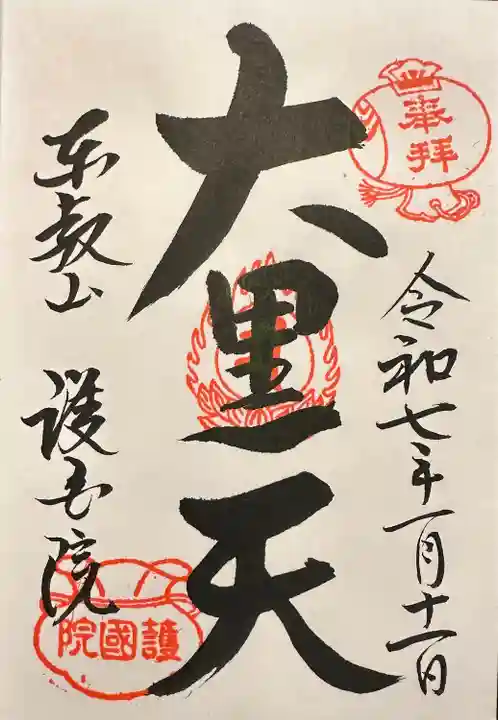 奉拝
令和七年一月十一日
大黒天
東叡山 護国院
護國院